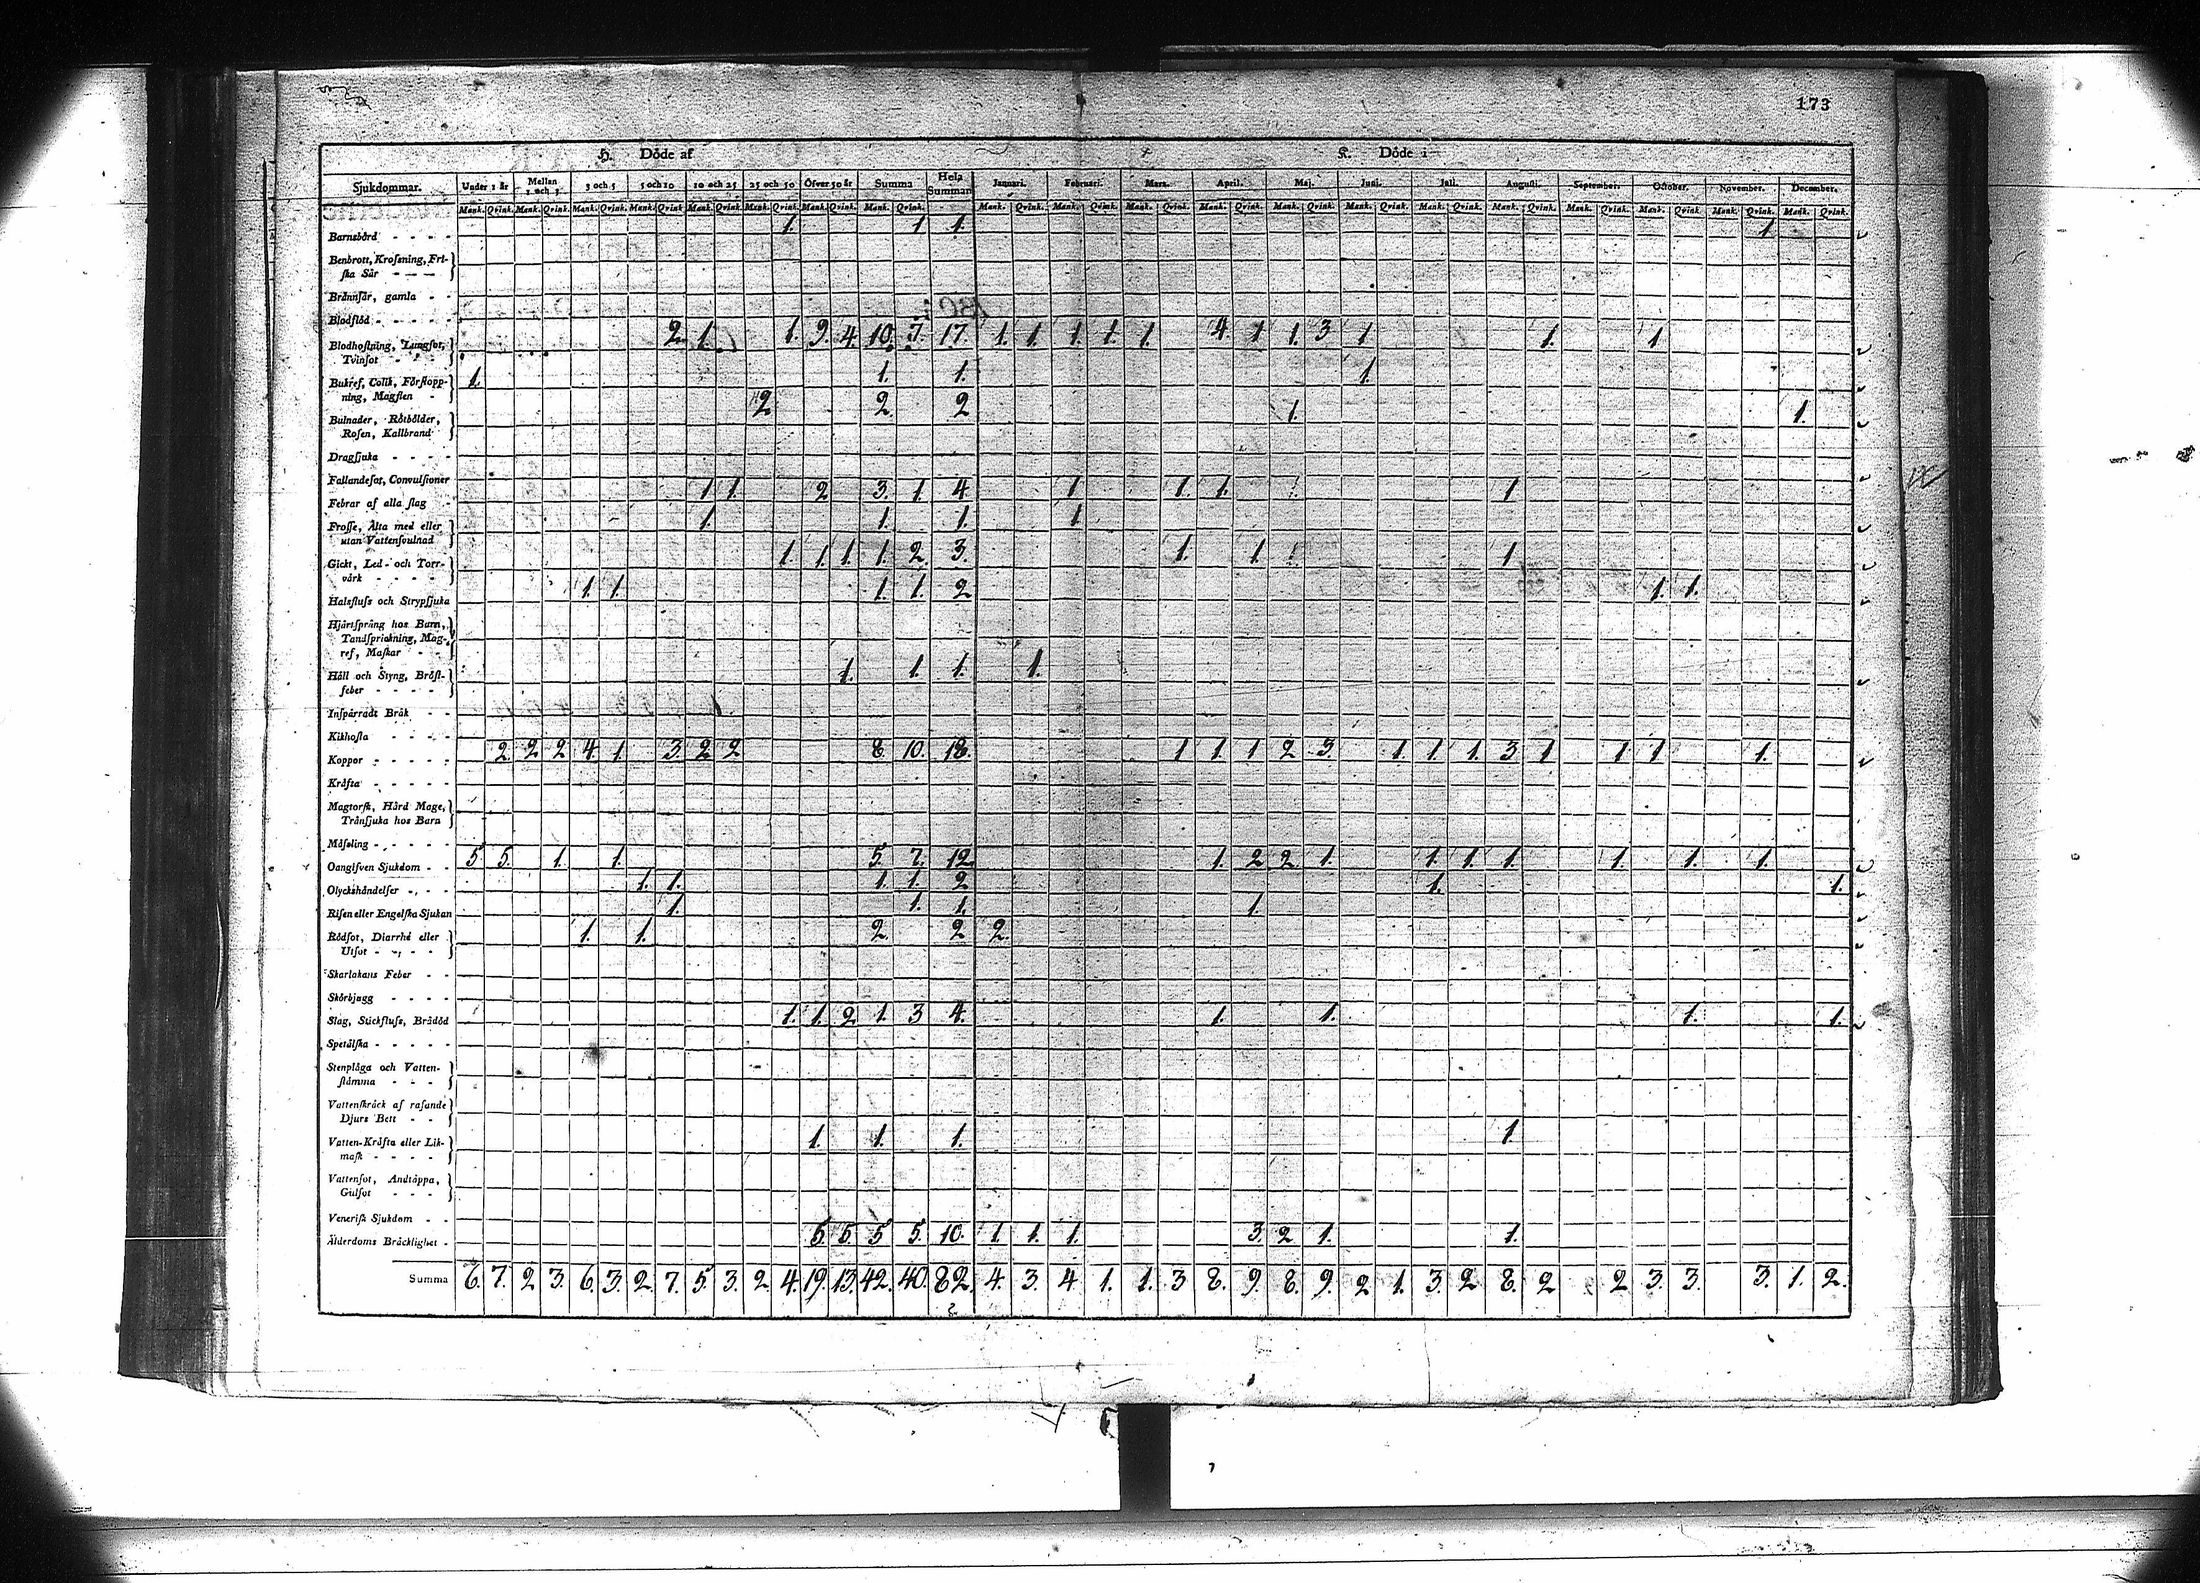 173
H. Döde af K. Döde i
Sjukdommar. Under 1 år Mellan 1 och 3 3 och 5 5 och 10 10 och 25 25 och 50 Öfver 50 år Summa Hela Summan Januari. Februari. Mars. April. Maj. Juni. Juli. Augusti. September. October. November. December.
Mank. Qvink. Mank. Qvink. Mank. Qvink. Mank. Qvink. Mank. Qvink. Mank. Qvink. Mank. Qvink. Mank. Qvink. Mank. Qvink. Mank. Qvink. Mank. Qvink. Mank. Qvink. Mank. Qvink. Mank. Qvink. Mank. Qvink. Mank. Qvink. Mank. Qvink. Mank. Qvink. Mank. Qvink. Mank. Qvink.
Barnsbörd 1. 1 1. 1
Benbrott, Krosning, Fri-
ska Sår
Brännsår, gamla
Blodflöd
Blodhostning, Lungsot, 2. 1. 1. 9. 4 10. 7. 17. 1. 1. 1. 1. 1. 4 1 1. 3 1 1. 1
Tvinsot
Bukref, Colik, Förstopp- 1. 1. 1. 1.
ning, Magsten
Bulnader, Rötbölder, 2 2 2 1. 1.
Rosen, Kallbrand
Dragsjuka
Fallandesot, Convulsioner
Febrar af alla slag 1 1. 2 3. 1. 4 1 1. 1. 1
Frosse, Älta med eller 1. 1. 1. 1
utan Vattensvulnad
Gickt, Led- och Torr- 1. 1. 1. 1. 2. 3. 1. 1 1
värk
Halsfluss och Strypsjuka 1 1. 1. 1. 2 1. 1.
Hjärtsprång hos Barn,
Tandsprickning, Mag-
ref, Maskar
Håll och Styng, Bröst- 1. 1. 1. 1.
feber
Inspärradt Bråk
Kikhosta
Koppor 2. 2 2 4. 1. 3. 2 2 8. 10. 18. 1 1. 1 2 3. 1. 1 1. 3 1 1 1 1.
Kräfta
Magtorsk, Hård Mage,
Trånsjuka hos Barn
Mässling
Oangifven Sjukdom 5. 5. 1. 1. 5. 7. 12 1. 2 2 1. 1. 1. 1 1. 1. 1.
Olyckshändelser 1. 1. 1. 1. 2 1. 1.
Risen eller Engelska Sjukan 1. 1. 1. 1.
Rödsot, Diarrhé eller 1. 1. 2. 2 2.
Utsot
Skarlakans Feber
Skörbjugg
Slag, Stickfluss, Brådöd 1. 1. 2 1. 3 4. 1. 1. 1. 1.
Spetälska
Stenplåga och Vatten-
stämma
Vattenskräck af rasande
Djurs Bett
Vatten-Kräfta eller Lik- 1. 1. 1. 1
mask
Vattensot, Andtäppa,
Gulsot
Venerisk Sjukdom
Ålderdoms Bräcklighet 5. 5. 5 5. 10. 1. 1. 1. 3. 2 1. 1.
Summa 6. 7. 2 3. 6. 3. 2. 7. 5. 3. 2. 4. 19. 13. 42. 40. 82. 4. 3. 4 1. 1. 3 8. 9. 8. 9. 2 1. 3. 2 8. 2 2 3. 3. 3. 1. 2.